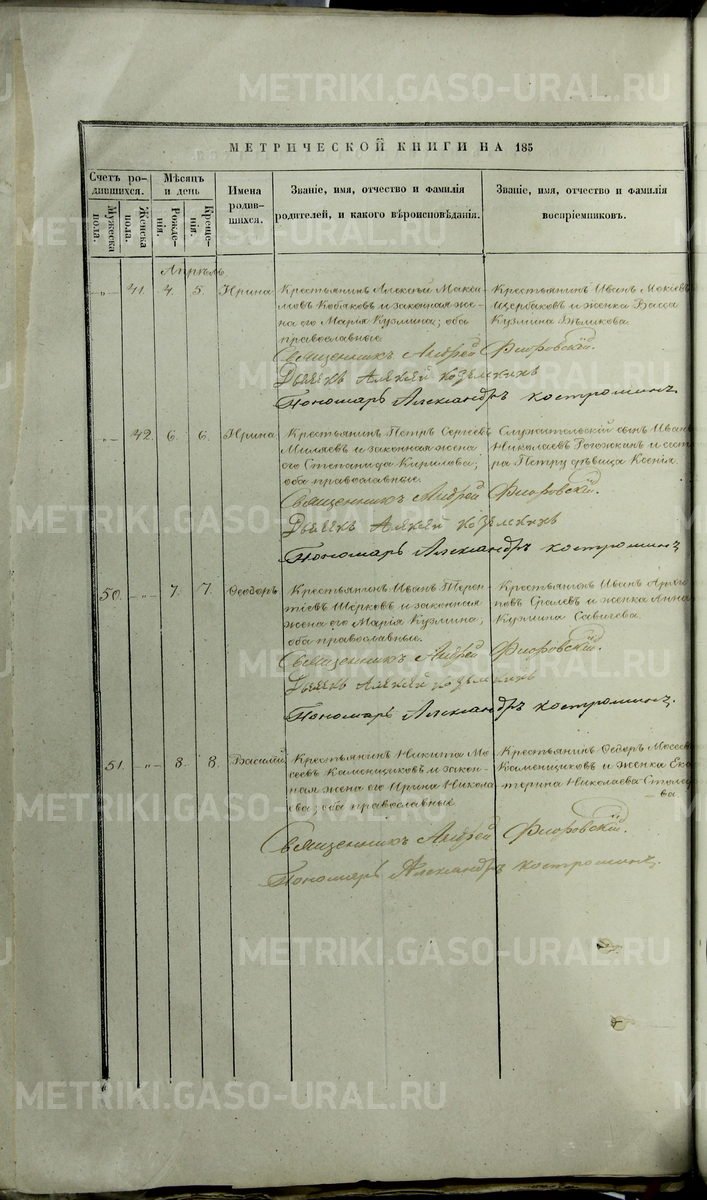 МЕТРИЧЕСКОЙ КНИГИ НА 185
Счетъ родившихся.
Мужеска пола.
Женска пола.
Мѣсяцъ и день
Рожденія.
Крещенія.
Имена родившихся.
Званіе, имя, отчество и фамилія
родителей, и какого вѣроисповѣданія.
Званіе, имя, отчество и фамилія
воспріемниковъ.
Апрѣль
„ 41. 4. 5. Ирина
Крестьянинъ Алексѣй Макси
мовъ Кобяковъ и законная же-
на его Марія Кузмина; оба
православнаго.
Крестьянинъ Иванъ Мокіевъ
Щербаковъ и женка Васса
Кузмина Бѣликова.
Священникъ Андрей Флоровскій.
Дьячекъ Алексѣй
Пономарь Александръ Костроминъ
„ 42. 6. 6. Ирина
Крестьянинъ Петръ Сергѣевъ
Миляевъ и законная жена
его Степанида Кирилова;
оба православные.
Служительскій сынъ Иванъ
Николаевъ Рогожкинъ и сест
ра Петру дѣвица Ксенія.
Священникъ Андрей Флоровскій.
Дьячекъ Алексѣй
Пономарь Александръ Костроминъ
50. „ 7. 7. Ѳеодоръ
Крестьянинъ Иванъ Терен
тіевъ и законная
жена его Марія Кузмина;
оба православные.
Крестьянинъ Иванъ Архи
повъ и женка Анна
Кузмина Савичева.
Священникъ Андрей Флоровскій.
Дьячекъ Алексѣй
Пономарь Александръ Костроминъ.
51. „ 8. 8. Василій
Крестьянинъ Никита Мо
сеевъ Каменщиковъ и закон-
ная жена его Ирина Никола
ева; оба православные
Крестьянинъ Ѳедоръ Мосеевъ
Каменщиковъ и женка Ека
терина Николаева
Священникъ Андрей Флоровскій.
Пономарь Александръ Костроминъ.
METRIKI.GASO-URAL.RU
METRIKI.GASO-URAL.RU
METRIKI.GASO-URAL.RU
METRIKI.GASO-URAL.RU
METRIKI.GASO-URAL.RU
METRIKI.GASO-URAL.RU
METRIKI.GASO-URAL.RU
METRIKI.GASO-URAL.RU